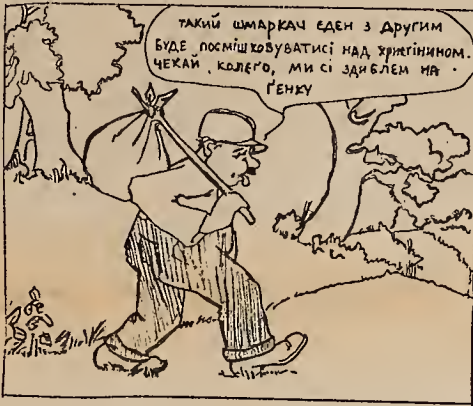 ТАКИЙ ШМАРКАЧ ЄДЕН З ДРУГИМ
БУДЕ ПОСМІШКОВУВАТИСІ НАД ХРИСТІНИНОМ.
ЧЕКАЙ, КОЛЕҐО, МИ СІ ЗДИБЛЕМ НА
ҐЕНКУ